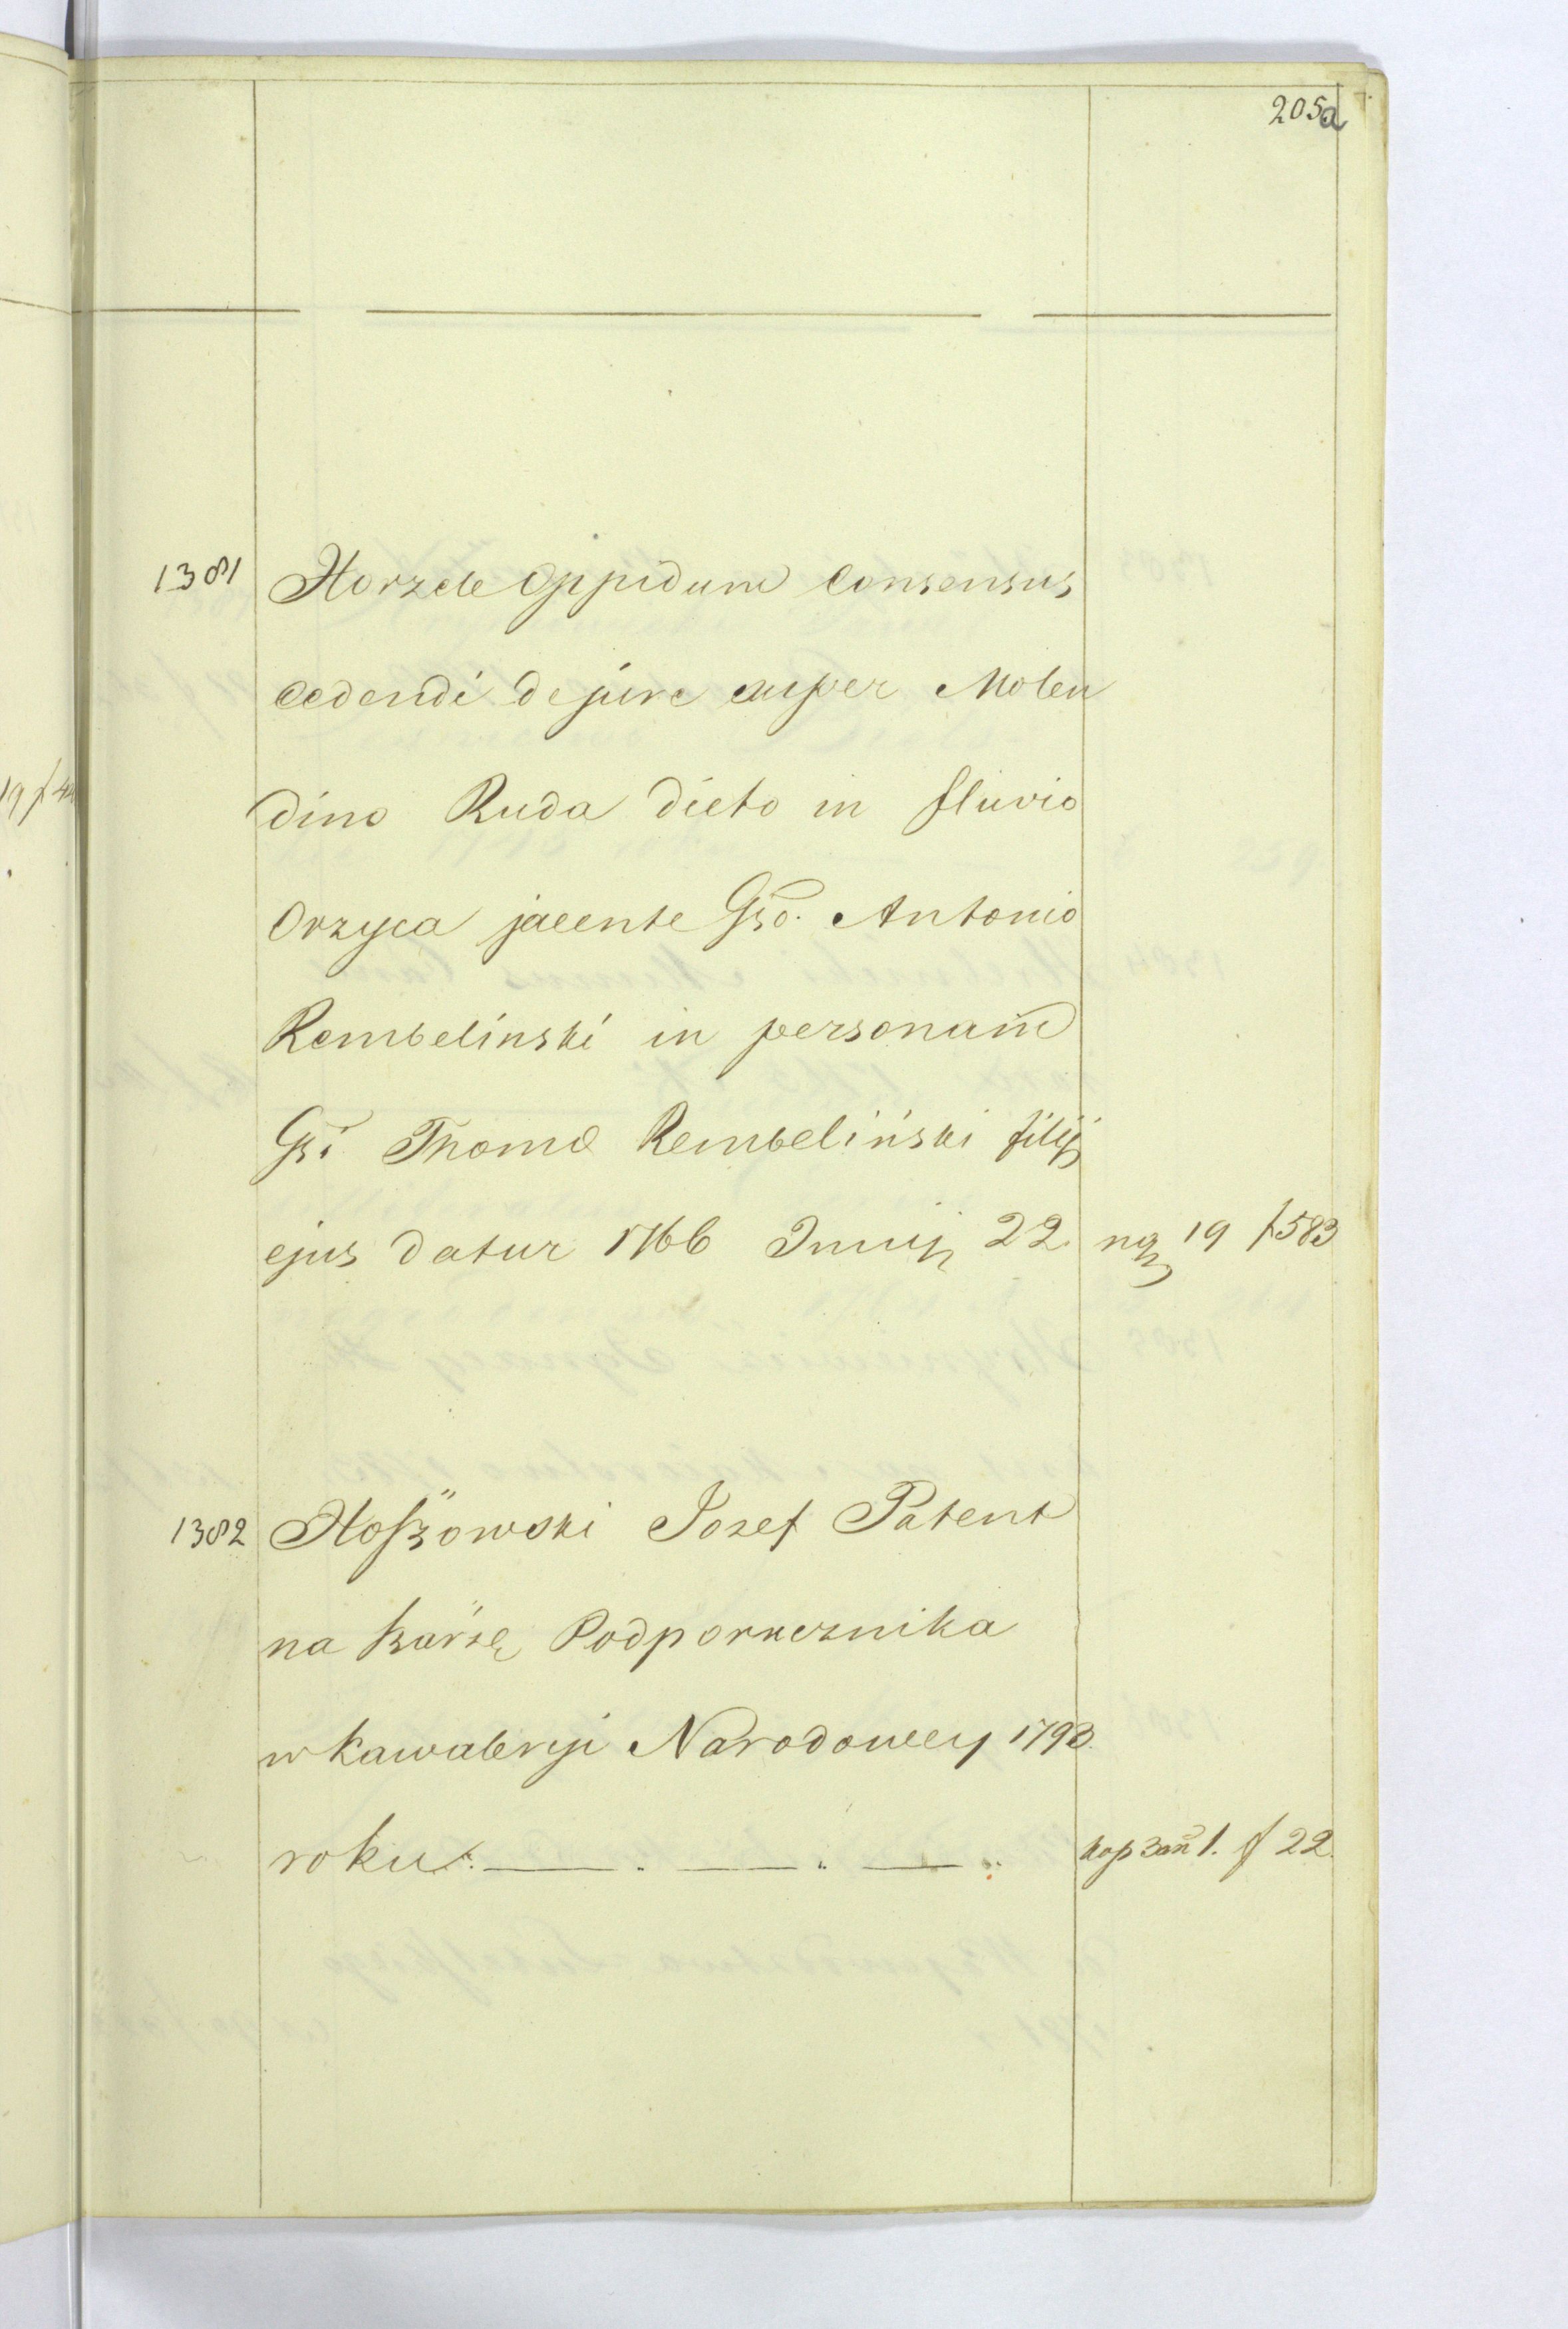 205a
1381 Horzele Oppidum Consensus
cedendi de jure super Molen
dino Ruda dicto in fluvio
Orzyca jacente Gso. Antonio
Rembelinski in personam̄
Gsi Thomæ Rembeliński filij
ejus datur 1766 Junij 22. 19 f 583
1382 Hoſzowski Jozef Patent
na Rangę Podporucznika
w Kawaleryi Narodowey 1793
roku. kap 3an 1. f 22.